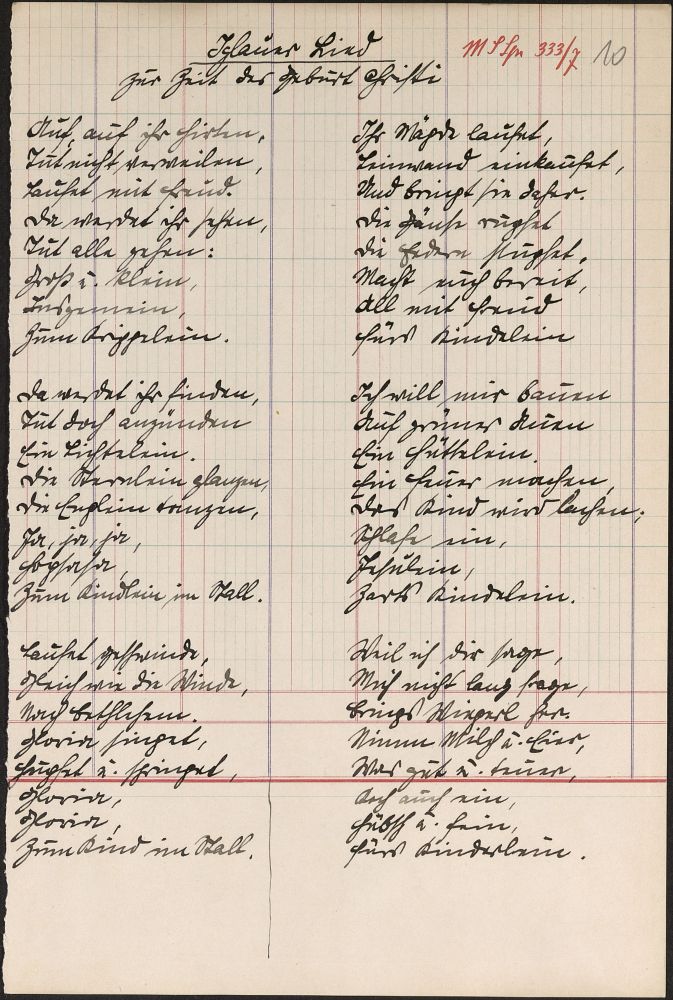 Iglauer Lied
MSSgr 333/7 10
zur Zeit der Geburt Christi
Auf, auf ihr Hirten,
Tut nicht verweilen,
Laufet mit Freud.
Da werdet ihr sehen,
Tut alle gehen:
Groß u. klein,
Insgemein,
Zum Krippelein.
Da werdet ihr finden,
Tut doch anzünden
Ein Lichtelein.
Die Sternlein glanzen,
Die Englein tanzen,
Ja, ja, ja,
Hopsasa,
Zum Kindlein im Stall.
Laufet geschwinde,
Gleich wie die Winde,
Nach Bethlehem.
Gloria singet,
Hupfet u. springet,
Gloria,
Gloria,
Zum Kind im Stall.
Ihr Mägde laufet,
Leinwand einkaufet,
Und bringt sie daher.
Die Gänse rupfet
Die Federn stupfet,
Macht euch bereit,
All mit Freud
Fürs Kindelein
Ich will mir bauen
Auf grüner Auen
Ein Hüttelein.
Ein Feuer machen,
Das Kind wird lachen;
Schlafe ein,
Jesulein,
Zarts Kindelein.
Weil ich dir sage,
Mich nicht lang frage,
Brings Wiegerl her.
Nimm Milch u. Eier,
Was gut u. teuer,
Koch auch ein,
Hübsch u. fein,
Fürs Kinderlein.